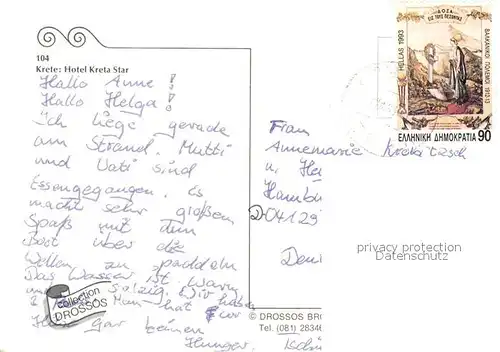 104
Krete: Hotel Kreta Star
Hallo Anne!
Hallo Helga!
Ich liege gerade
am Strand. Mutti
und Vati sind
Essengegangen. Es
macht sehr großen
Spaß mit dem
Boot über die
Wellen zu paddeln
Das Wasser ist warm
und salzig. Wir haben
Man hat
gar keinen
Hunger.
collection
DROSSOS
© DROSSOS BRO
Tel. (081) 28346
HELLAS 1993
ΔΟΞΑ
ΕΙΣ ΤΟΥΣ ΠΕΣΟΝΤΑΣ
ΒΑΛΚΑΝΙΚΟΙ ΠΟΛΕΜΟΙ 1912-13
ΕΛΛΗΝΙΚΗ ΔΗΜΟΚΡΑΤΙΑ 90
Frau
Annemarie
u. He
Hambu
D-04129
privacy protection
Datenschutz